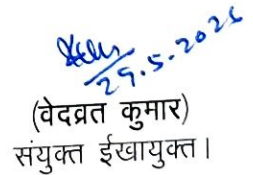 29.5.2025
(वेदव्रत कुमार)
संयुक्त ईखायुक्त।